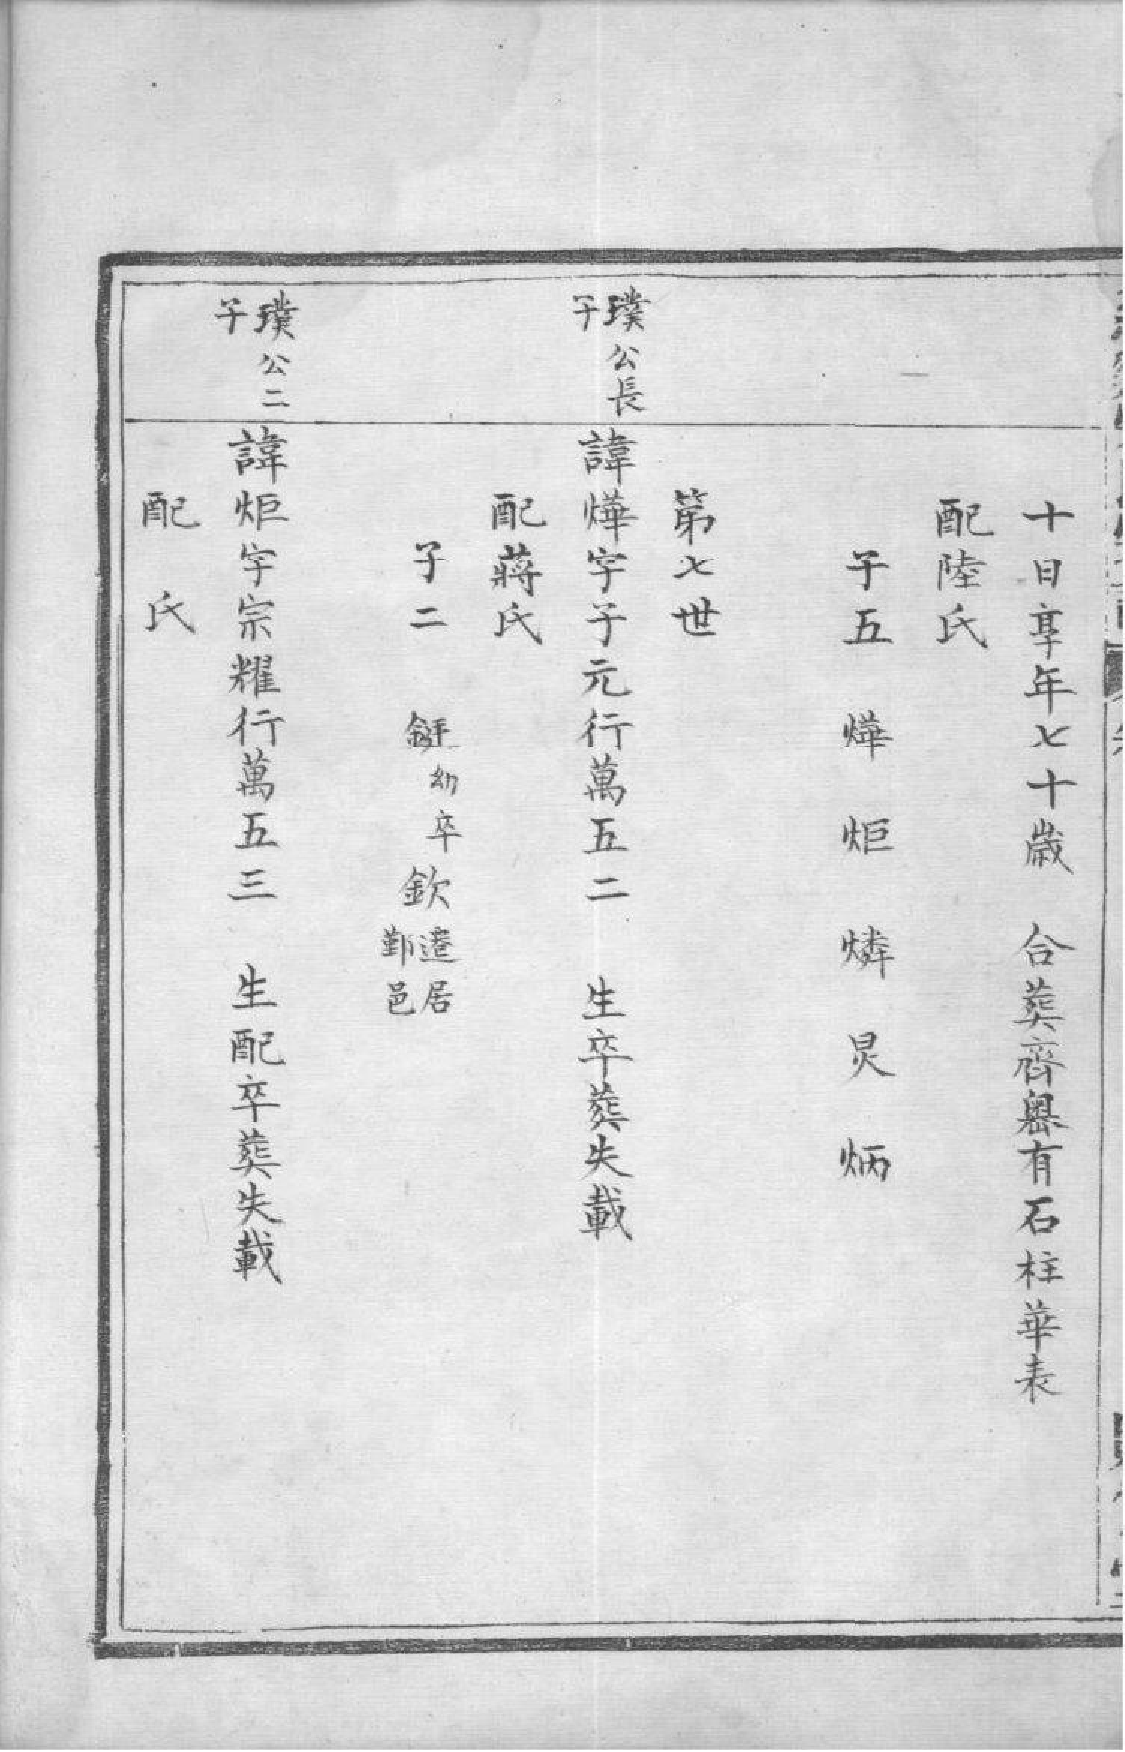 十日享年七十歲　合葬齊嶴有石柱華表
配陸氏
子五　燁　炬　燐　炅　炳
第七世
璞公長子
諱燁字子元行萬五二　生卒葬失載
配蔣氏
子二　幼卒　欽遷居鄞邑
璞公二子
諱炬字宗耀行萬五三　生配卒葬失載
配　氏